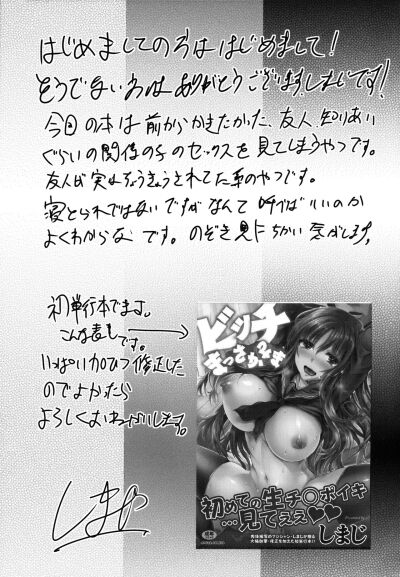 はじめましての方ははじめまして!
そうでない方はありがとうございます!しまじです!
今回の本は前からかきたかった、友人、知りあい
ぐらいの関係の子のセックスを見てしまうやつです。
友人が実はちょうきょうされてた系のやつです。
寝とられではないですがなんて呼べばいいのか
よくわからないです。のぞき見にちかい気がします。
初単行本でます。
こんな表しです。
いっぱい加ひつ修正した
のでよかったら
よろしくおねがいします。
しまじ
ビッチ
初めての生チ〇ポイキ
…見てぇぇ♥♥
しまじ